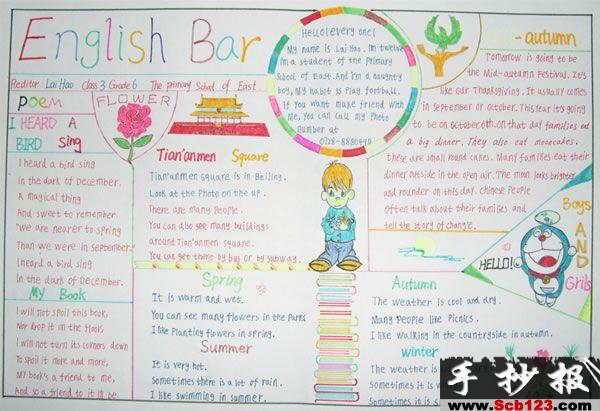 English Bar
Reditor Lai Hao Class 3 Grade 6 The primary School of East
Poem
I HEARD A
BIRD Sing
I heard a bird sing
In the dark of December.
A magical thing
And sweet to remember.
"We are nearer to spring
Than we were in september."
I heard a bird sing
In the dark of December.
My Book
I will not spoil this book,
Nor drop it on the floor
I will not turn its corners down
To spoil it more and more,
My book's a friend to me,
And so a friend to it I'll be.
FLOWER
Tian'anmen Square
Tian'anmen square is in Beijing.
Look at the Photo on the up.
There are many People.
You can also see many buildings
around Tian'anmen square.
You can get there by bus or by subway.
Hello! every one!
My name is Lai Hao. Im twelve
I'm a student of the Primary
School of East. And I'm a naughty
boy. My habit is Play football.
If you want make friend with
Me, You can call my Photo
number at
0128-8880490
-autumn
Tomorrow is going to be
the Mid-autumn Festival. It's
like our Thanksgiving. It usually comes
in September or October. This Year it's going
to be on October 6th. On that day families eat
a big dinner. They also eat mooncakes.
These are small round cakes. Many families eat their
dinner outside in the open air. The moon looks brighter
and rounder on this day. Chinese People
Often talk about their families and
tell the story of Change.
Boys
AND
Grils
HELLO!
Spring
It is warm and wet.
You can see many flowers in the Parks
I like Planting flowers in spring.
Summer
It is very hot.
Sometimes there is a lot of rain.
I like swimming in summer.
Autumn
The weather is cool and dry.
Many People like Picnics.
I like walking in the countryside in autumn.
winter
The weather is
Sometimes it is
Sometimes it
手抄报
www.Scb123.com